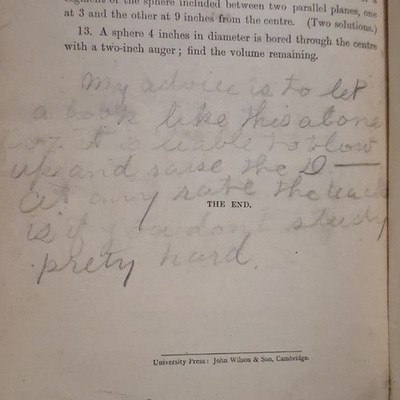 segment of the sphere included between two parallel planes, one
at 3 and the other at 9 inches from the centre. (Two solutions.)
13. A sphere 4 inches in diameter is bored through the centre
with a two-inch auger; find the volume remaining.
My advice is to let
a book like this alone
or it is liable to blow
up and raise the D—
At any rate the
THE END.
is if you don't study
prety hard.
University Press: John Wilson & Son, Cambridge.